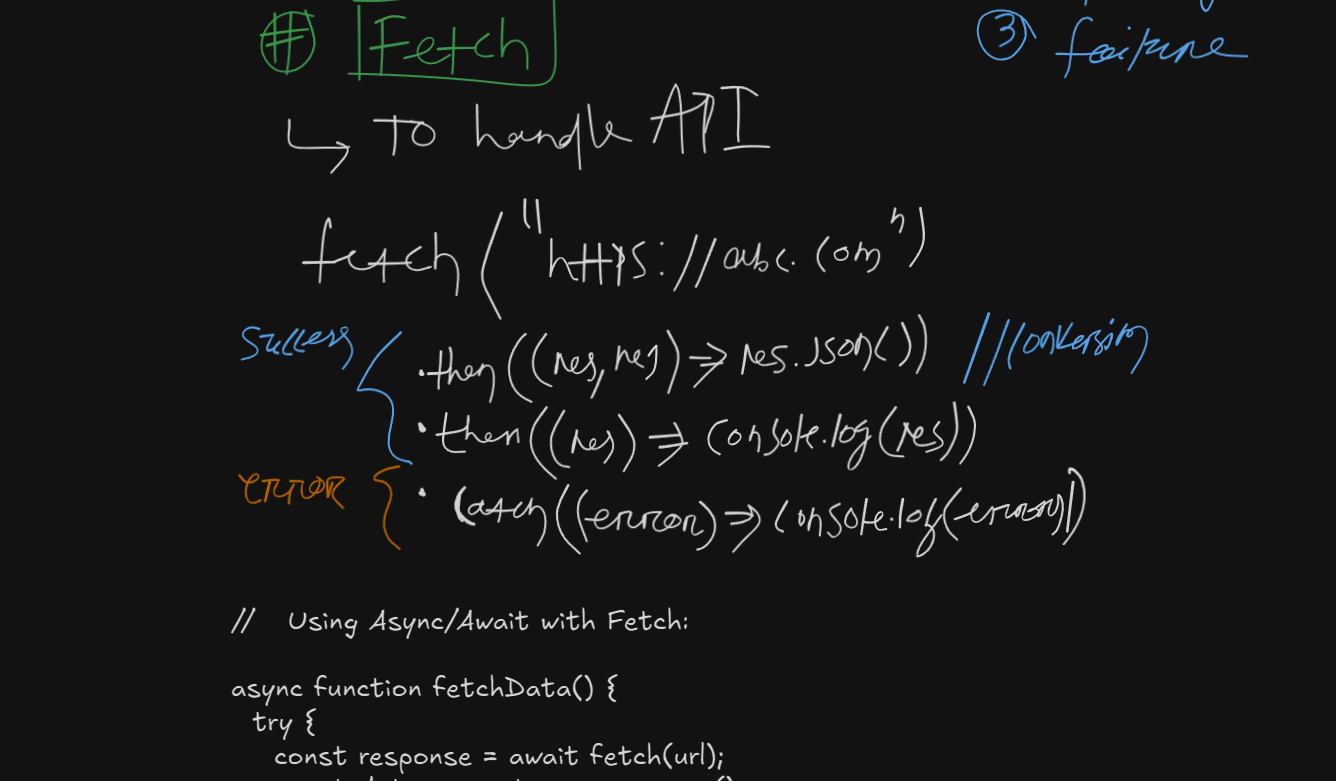 # Fetch
③ failure
↳ To handle API
fetch("https://abc.com")
success
.then((res, res) => res.json()) //conversion
.then((res) => console.log(res))
error
.catch((error) => console.log(error))
// Using Async/Await with Fetch:
async function fetchData() {
try {
const response = await fetch(url);